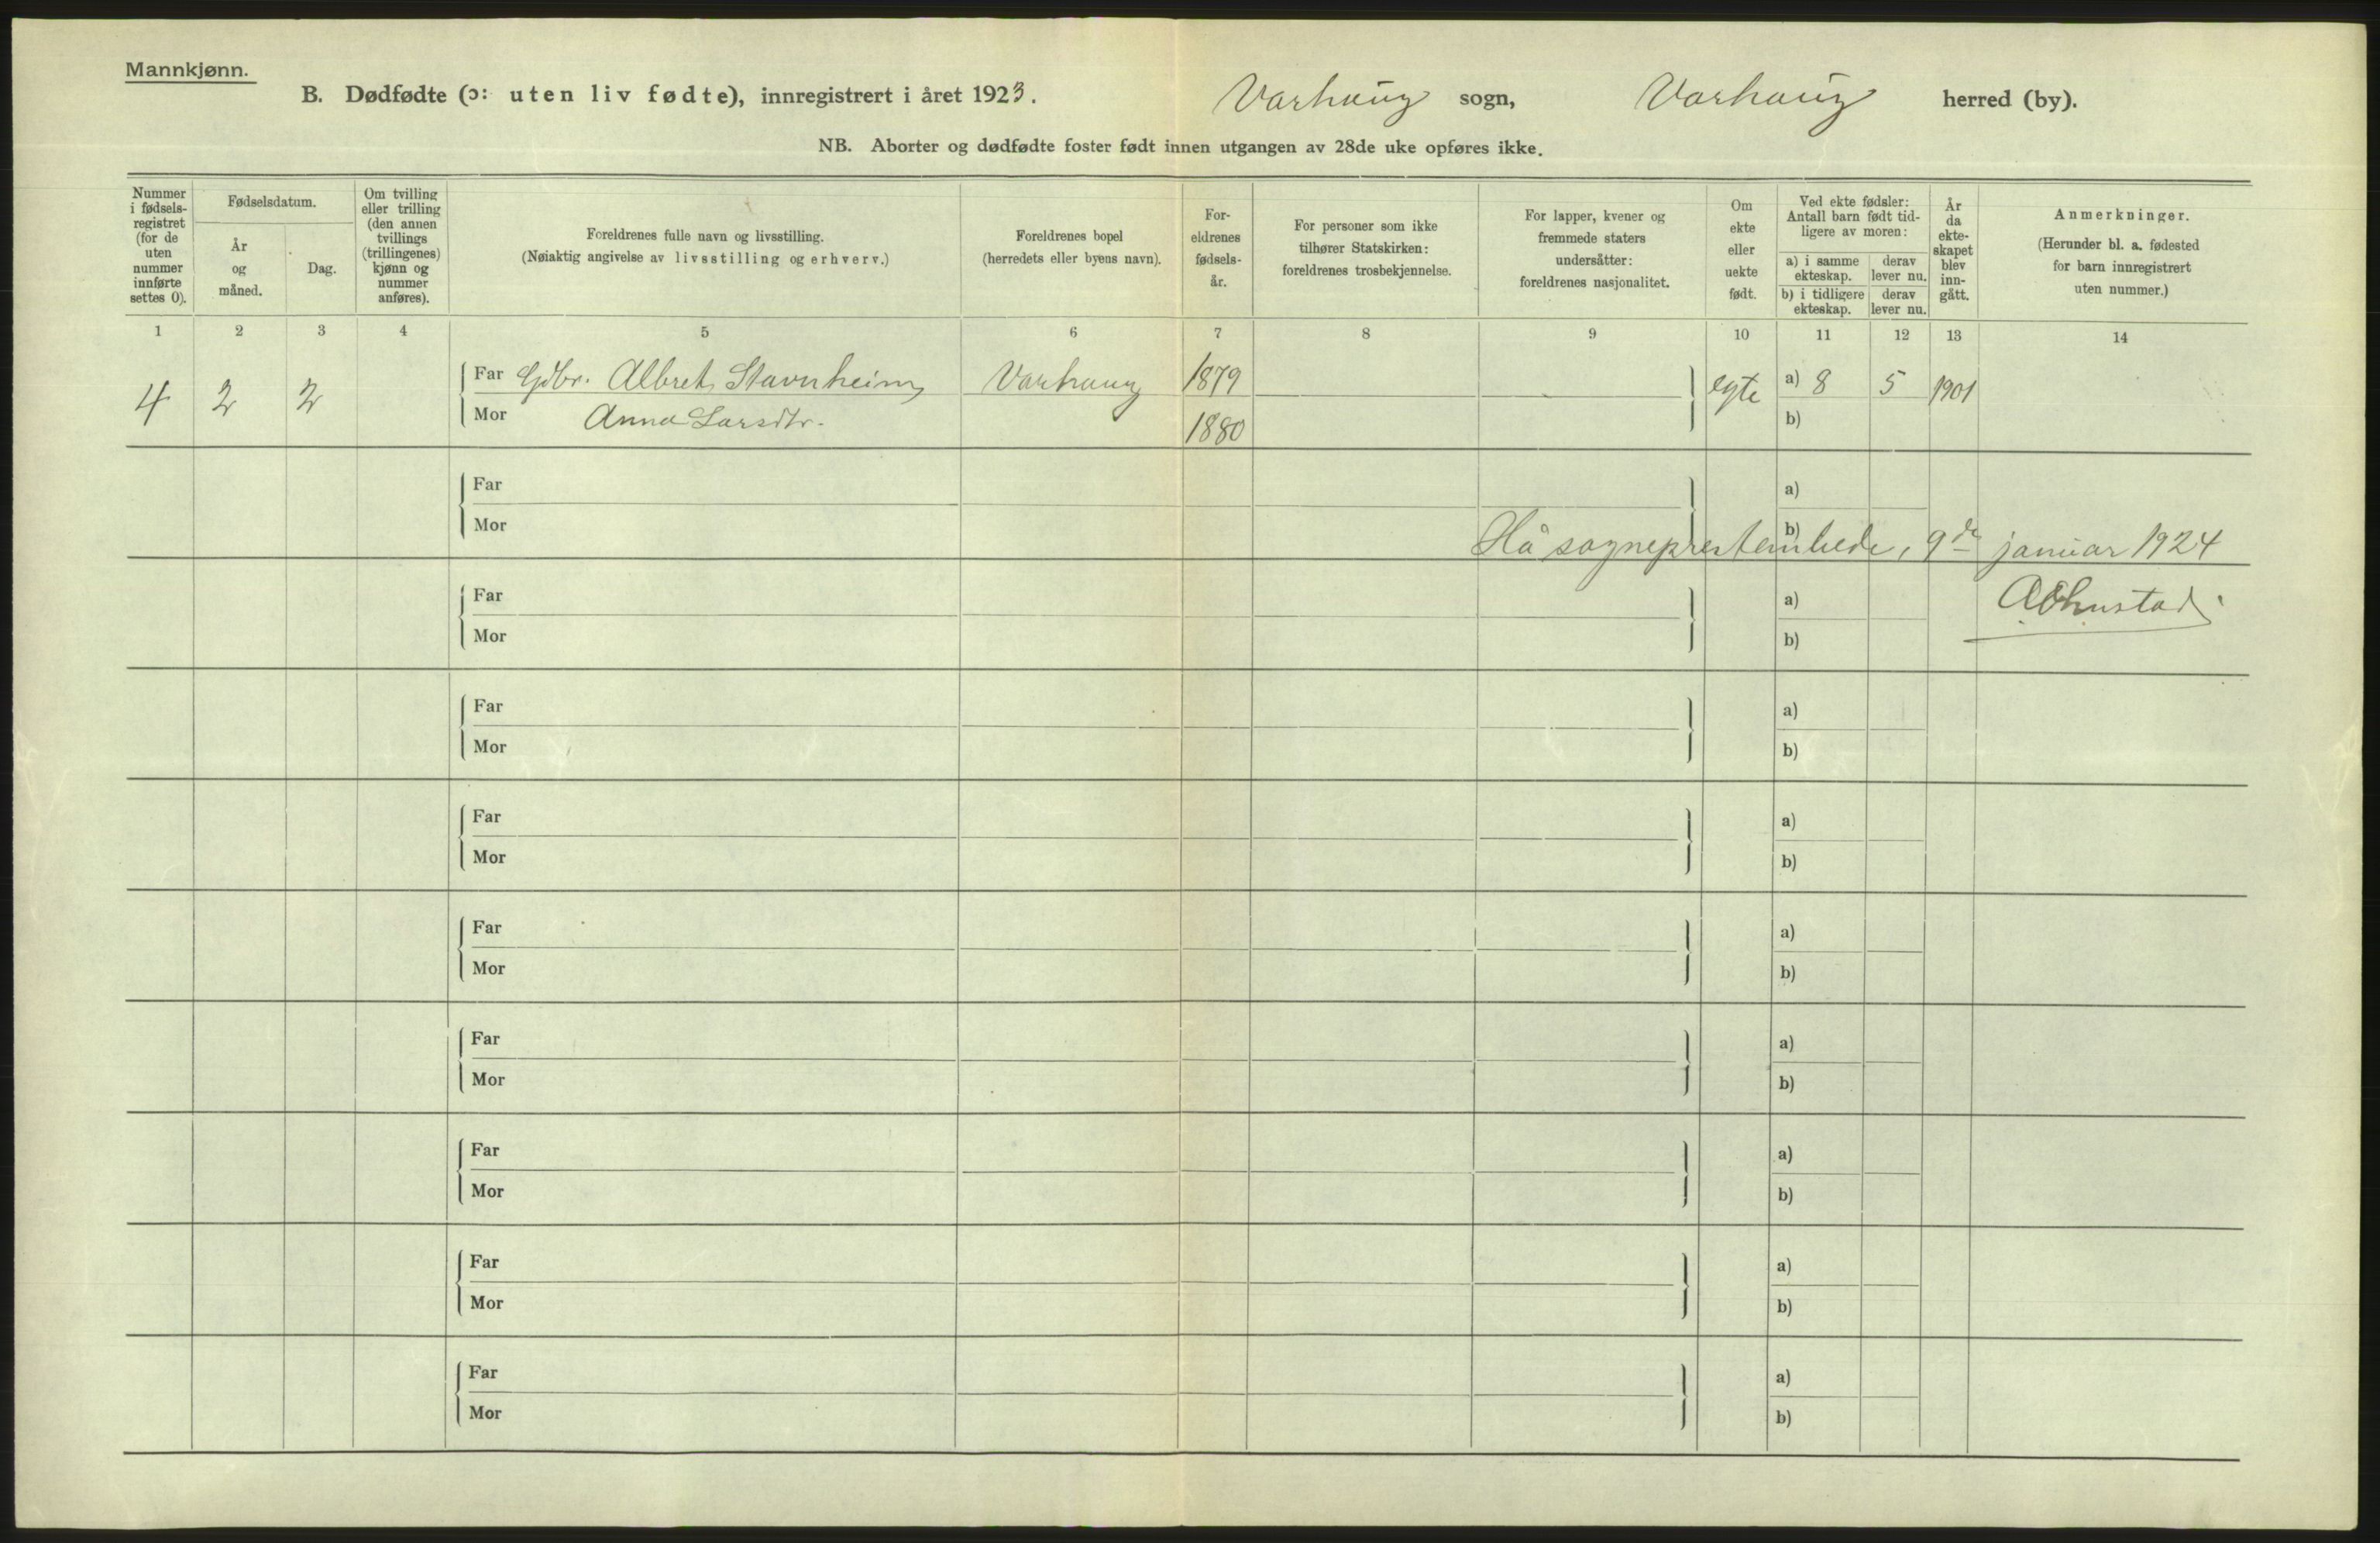 Mannkjønn.
B. Dødfødte (ɔ: uten liv fødte), innregistrert i året 1923. Varhaug sogn, Varhaug herred (by).
NB. Aborter og dødfødte foster født innen utgangen av 28de uke opføres ikke.
Nummer i fødselsregistret (for de uten nummer innførte settes 0).
Fødselsdatum.
År og måned.
Dag.
Om tvilling eller trilling (den annen tvillings (trillingenes) kjønn og nummer anføres).
Foreldrenes fulle navn og livsstilling.
(Nøiaktig angivelse av livsstilling og erhverv.)
Foreldrenes bopel
(herredets eller byens navn).
Foreldrenes fødselsår.
For personer som ikke tilhører Statskirken: foreldrenes trosbekjennelse.
For lapper, kvener og fremmede staters undersåtter: foreldrenes nasjonalitet.
Om ekte eller uekte født.
Ved ekte fødsler: Antall barn født tidligere av moren:
a) i samme ekteskap. derav lever nu.
b) i tidligere ekteskap. derav lever nu.
År da ekteskapet blev inngått.
Anmerkninger.
(Herunder bl. a. fødested for barn innregistrert uten nummer.)
1 2 3 4 5 6 7 8 9 10 11 12 13 14
4 2 2 Far Gdbr. Albret Stavnheim Varhaug 1879 egte a) 8 5 1901
Mor Anna Larsdtr. 1880 b)
Far a)
Mor b)
Hå sogneprestembede, 9de januar 1924
Far a)
Mor b)
Far a)
Mor b)
Far a)
Mor b)
Far a)
Mor b)
Far a)
Mor b)
Far a)
Mor b)
Far a)
Mor b)
Far a)
Mor b)